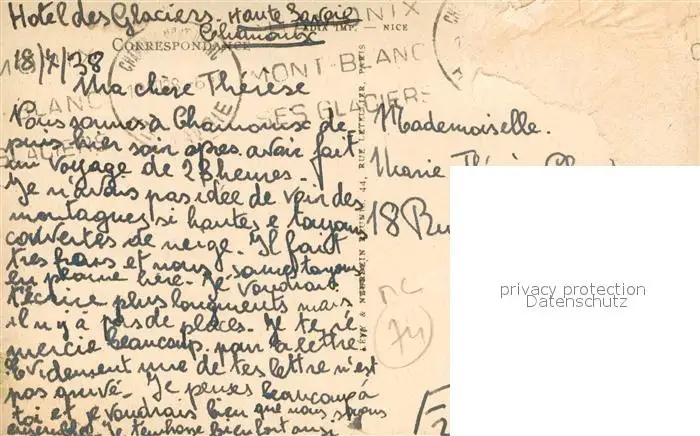 Hotel des Glaciers. Haute Savoie
Chamonix
ADIA IMP. — NICE
CORRESPONDANCE
18/7/38
CHAMONIX
MONT-BLANC
SES GLACIERS
Ma chère Thérèse
Nous sommes à Chamonix de
puis hier soir apres avoir fait
un voyage de 28 heures.
Je n'avais pas idée de voir des
montagnes si hautes e toujours
couvertes de neige. Il fait
tres frais et nous sommes toujours
en pleine
t'écrire plus longuments mais
il n'y à pas de places. Je te re
mercie beaucoup pour ta lettre
Evidensent une de tes lettre n'est
pas arrivé. Je penses beaucoup à
toi et je voudrais bien que nous soyons
ensemble. Je t'embrasse bien fort ainsi
LÉVY & NEURDEIN RÉUNIS, 44, RUE LETELLIER, PARIS
Mademoiselle.
Marie Thérèse
18 Ru
privacy protection
Datenschutz
MC
74